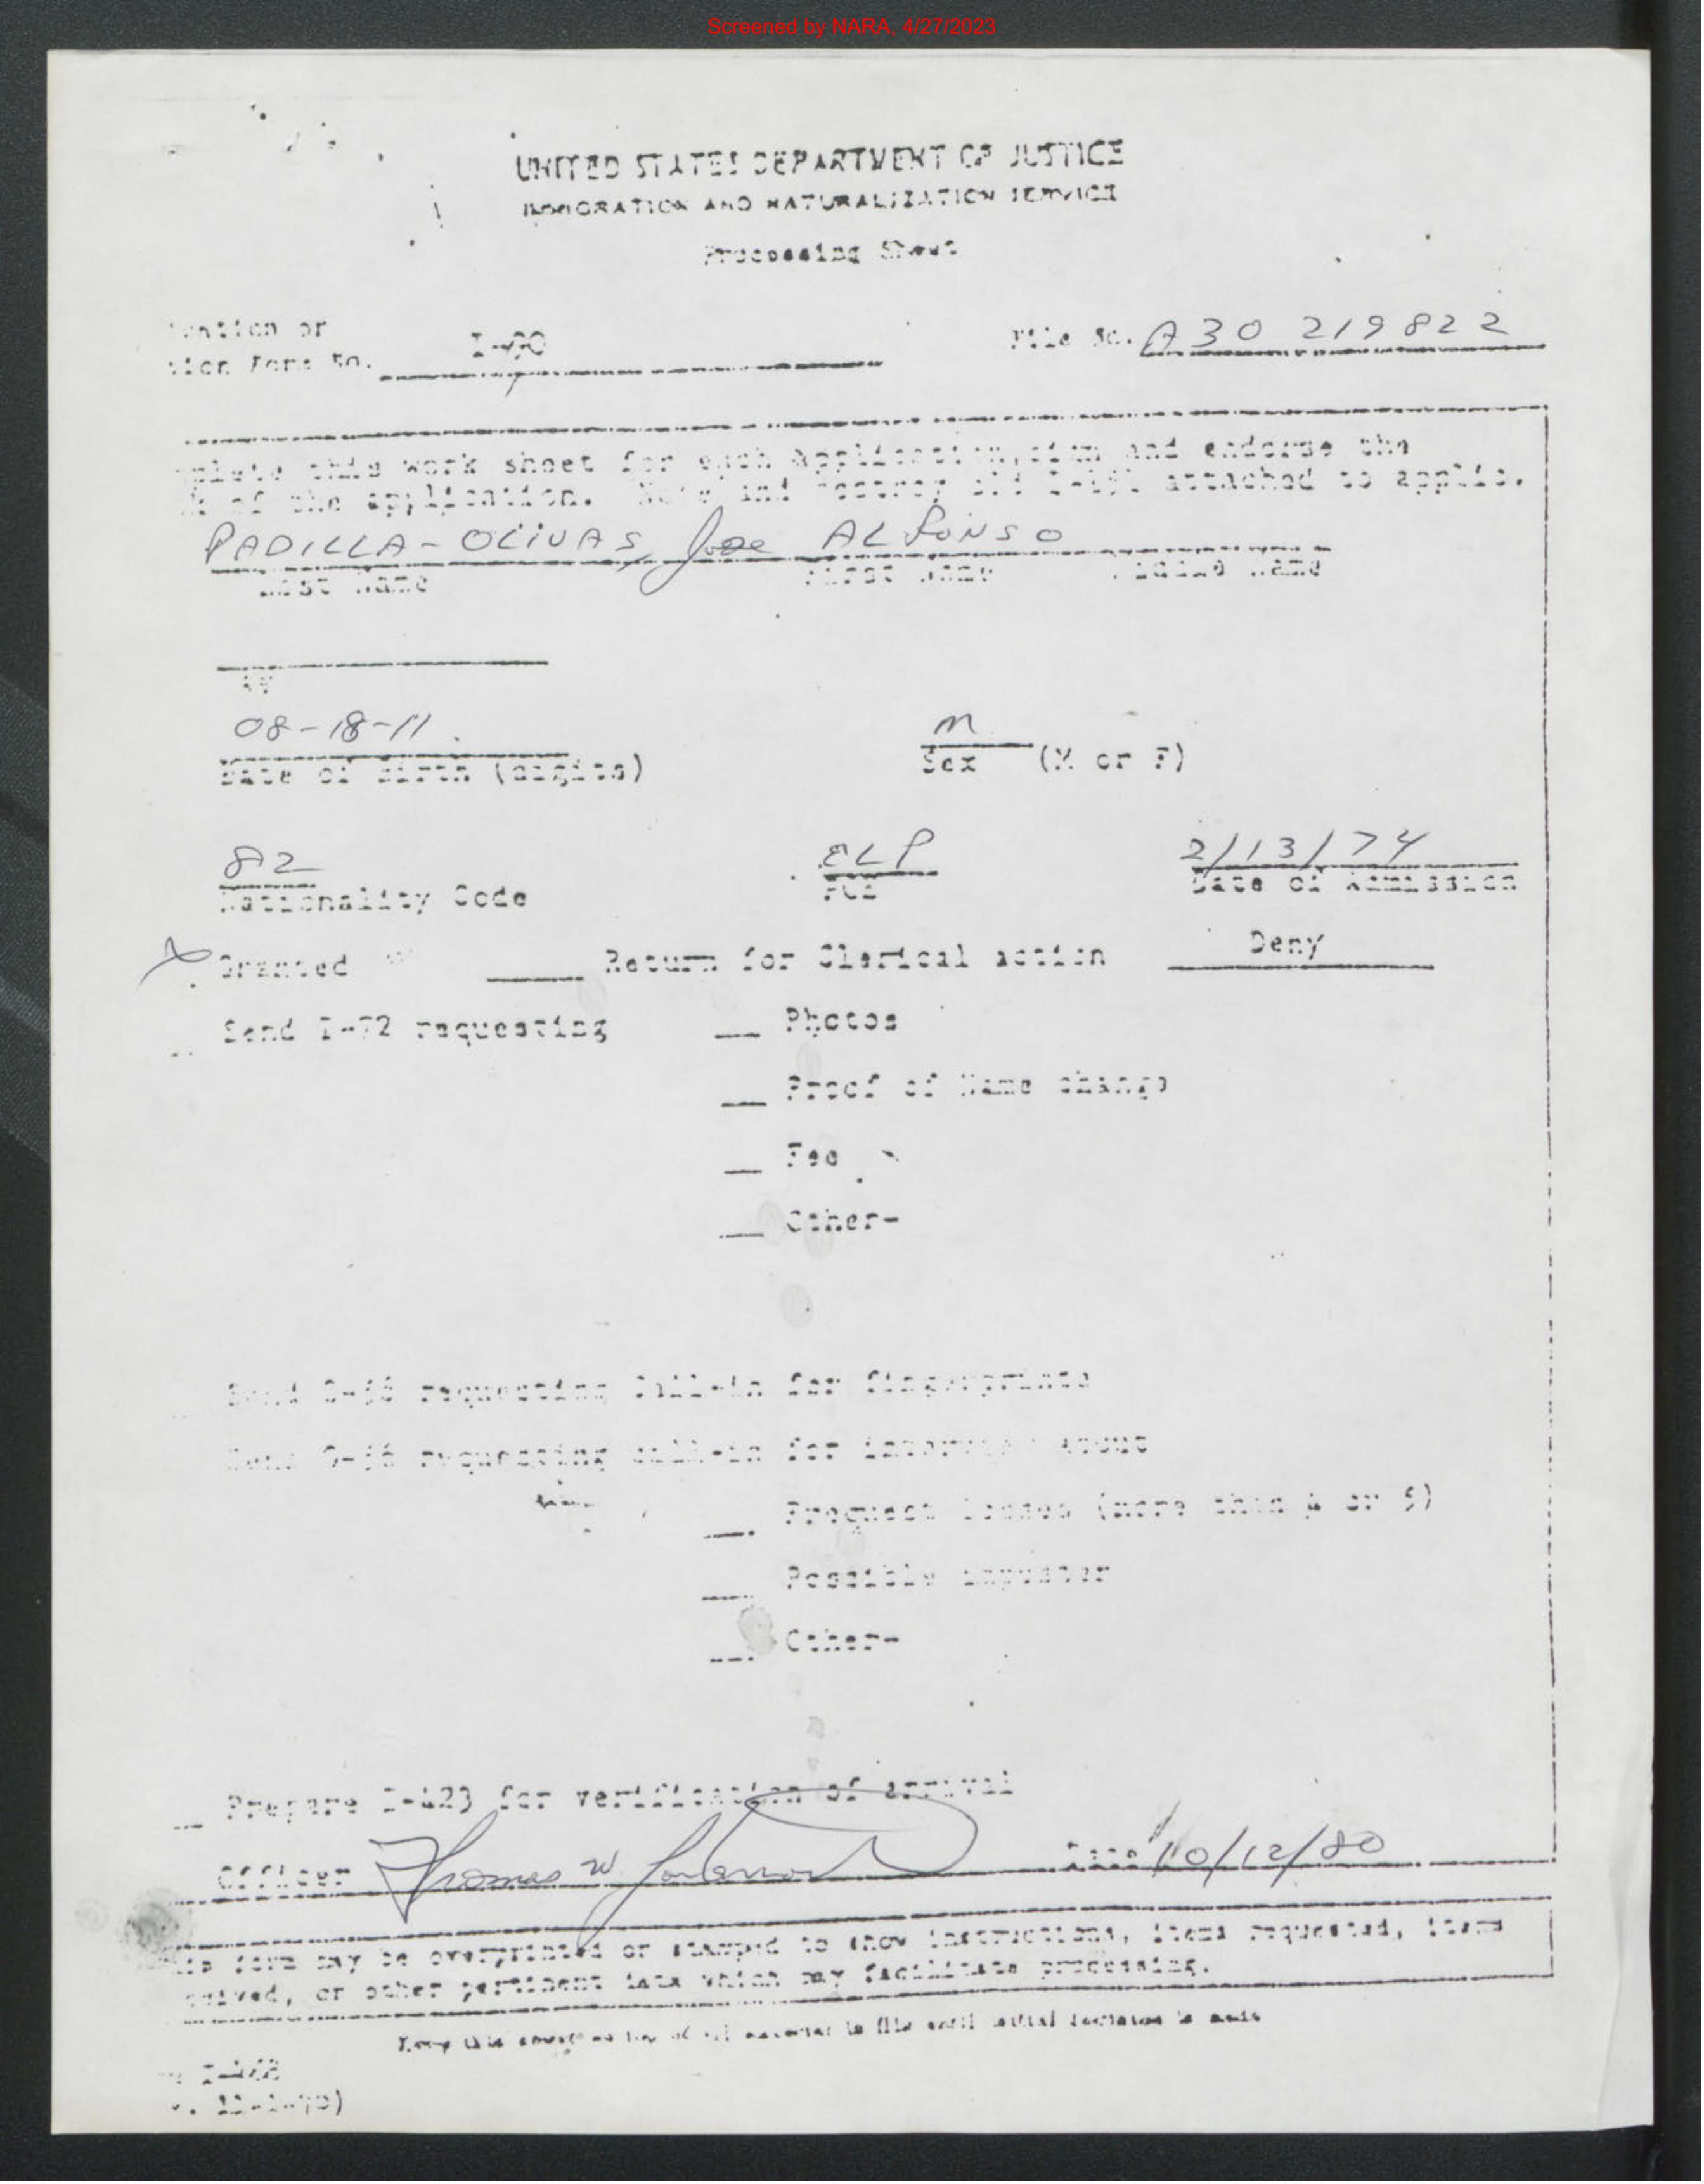 Screened by NARA, 4/27/2023
UNITED STATES DEPARTMENT OF JUSTICE
IMMIGRATION AND NATURALIZATION SERVICE
Processing Sheet
or
Form No. I-90
File No. A30 219 822
this work sheet for each application, sign and endorse the
of the application. Note and destroy old attached to applic.
PADILLA-OLIVAS, Jose ALFONSO
Last Name First Name Middle Name
08-18-11
Date of Birth (digits)
M
Sex (M or F)
82 ELP 2/13/74
Nationality Code POE Date of Admission
X Granted Return for Clerical action Deny
Send I-72 requesting Photos
Proof of Name change
Fee
Other-
Send G-56 requesting call-in for fingerprints
Send G-56 requesting call-in for interview about
Frequent losses (more than 4 or 5)
Possible imposter
Other-
Prepare I-423 for verification of arrival
Officer Thomas W Date 10/12/80
form may be overprinted or stamped to show instructions, items requested, items
or other pertinent data which may facilitate processing.
Keep this sheet on top of all material in file until initial decision is made